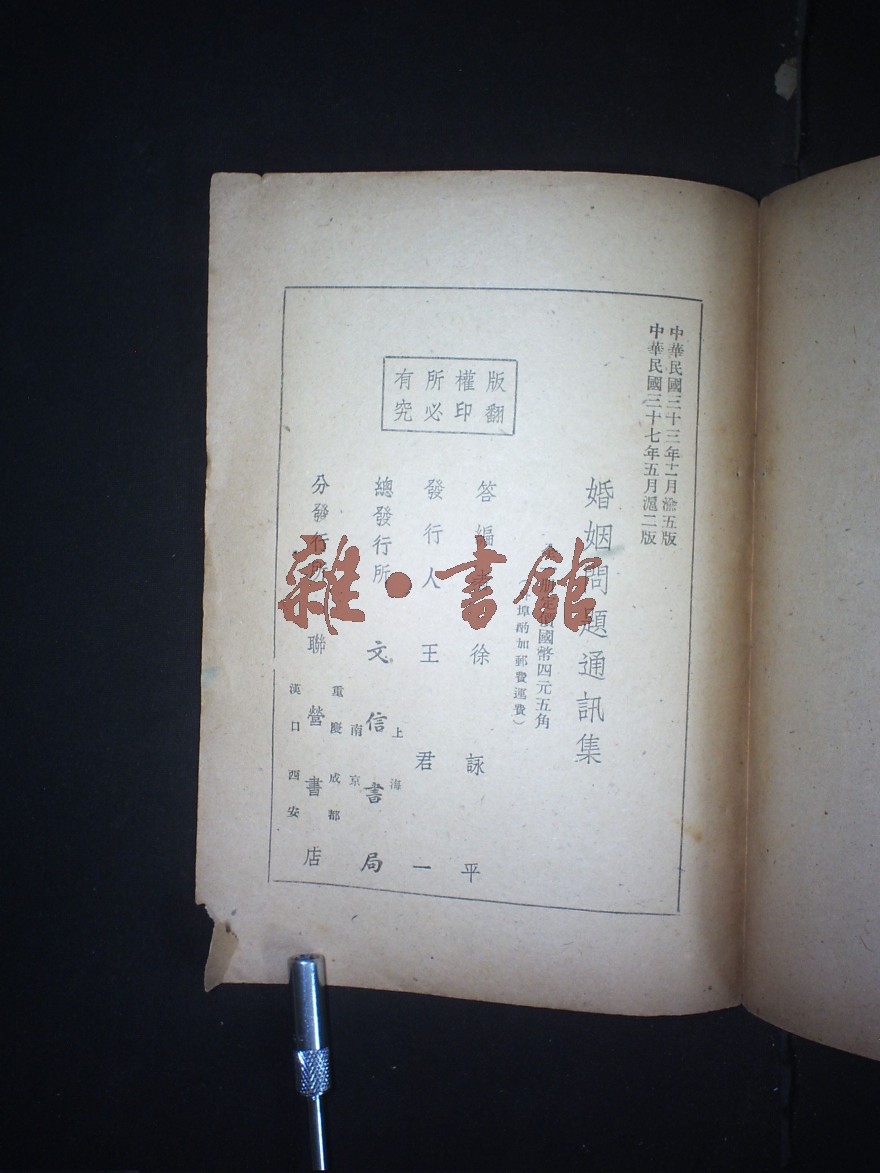 中華民國三十三年十二月渝五版
中華民國三十七年五月滬二版
婚姻問題通訊集
國幣四元五角
埠酌加郵費運費）
版權所有
翻印必究
答編者 徐詠平
發行人 王君一
總發行所 文信書局
上海
南京
分發行所 聯營書店
重慶成都
漢口西安
雜·書館